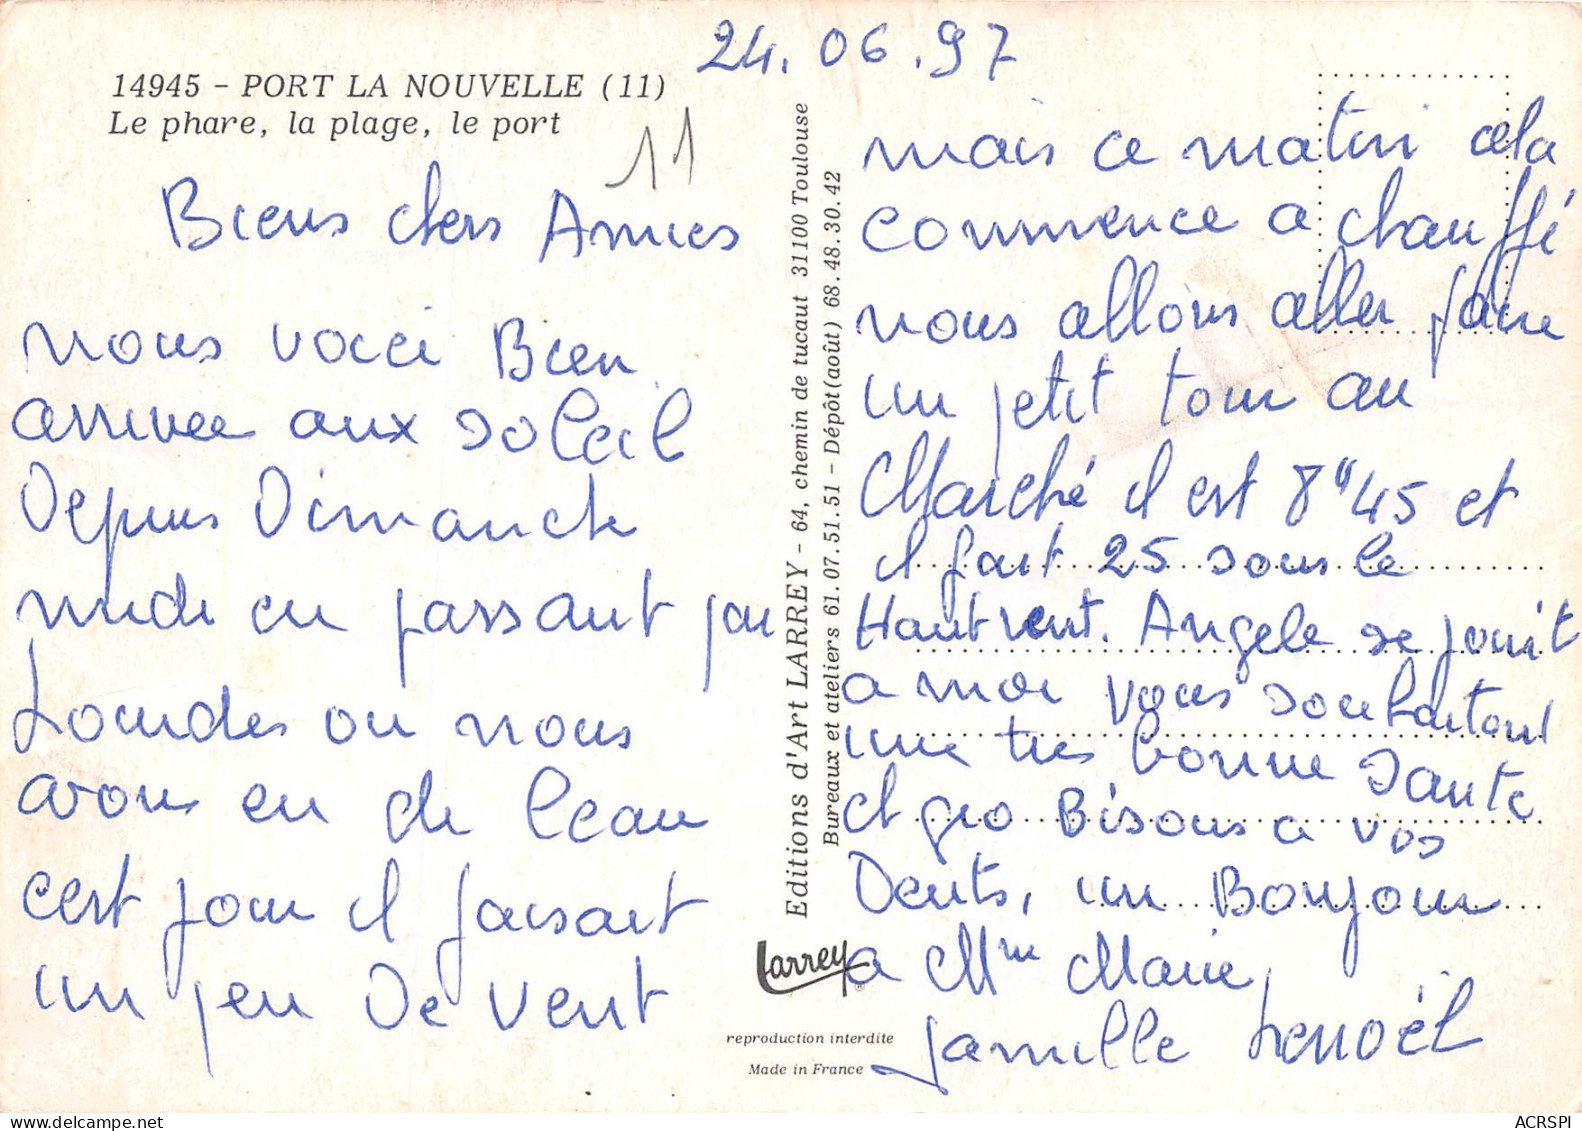 24.06.97
14945 - PORT LA NOUVELLE (11)
Le phare, la plage, le port
11
Biens chers Amies
nous voici Bien
arrivee aux soleil
Depuis Dimanche
midi en passant par
Lourdes ou nous
avons eu de leau
cest jour il faisait
un peu de vent
Editions d'Art LARREY - 64, chemin de tucaut 31100 Toulouse
Bureaux et ateliers 61.07.51.51 - Dépôt (août) 68.48.30.42
Larrey
®
reproduction interdite
Made in France
mais ce matin cela
commence a chauffé
nous allons aller faire
un petit tour au
Marché il est 8"45 et
il fait 25 sous le
Hautvent. Angele se joint
a moi vous souhaitant
une tres bonne Sante
et gro Bisous a vos
Dents, un Bonjour
a Mme Marie
famille Lenoël
ACRSPI